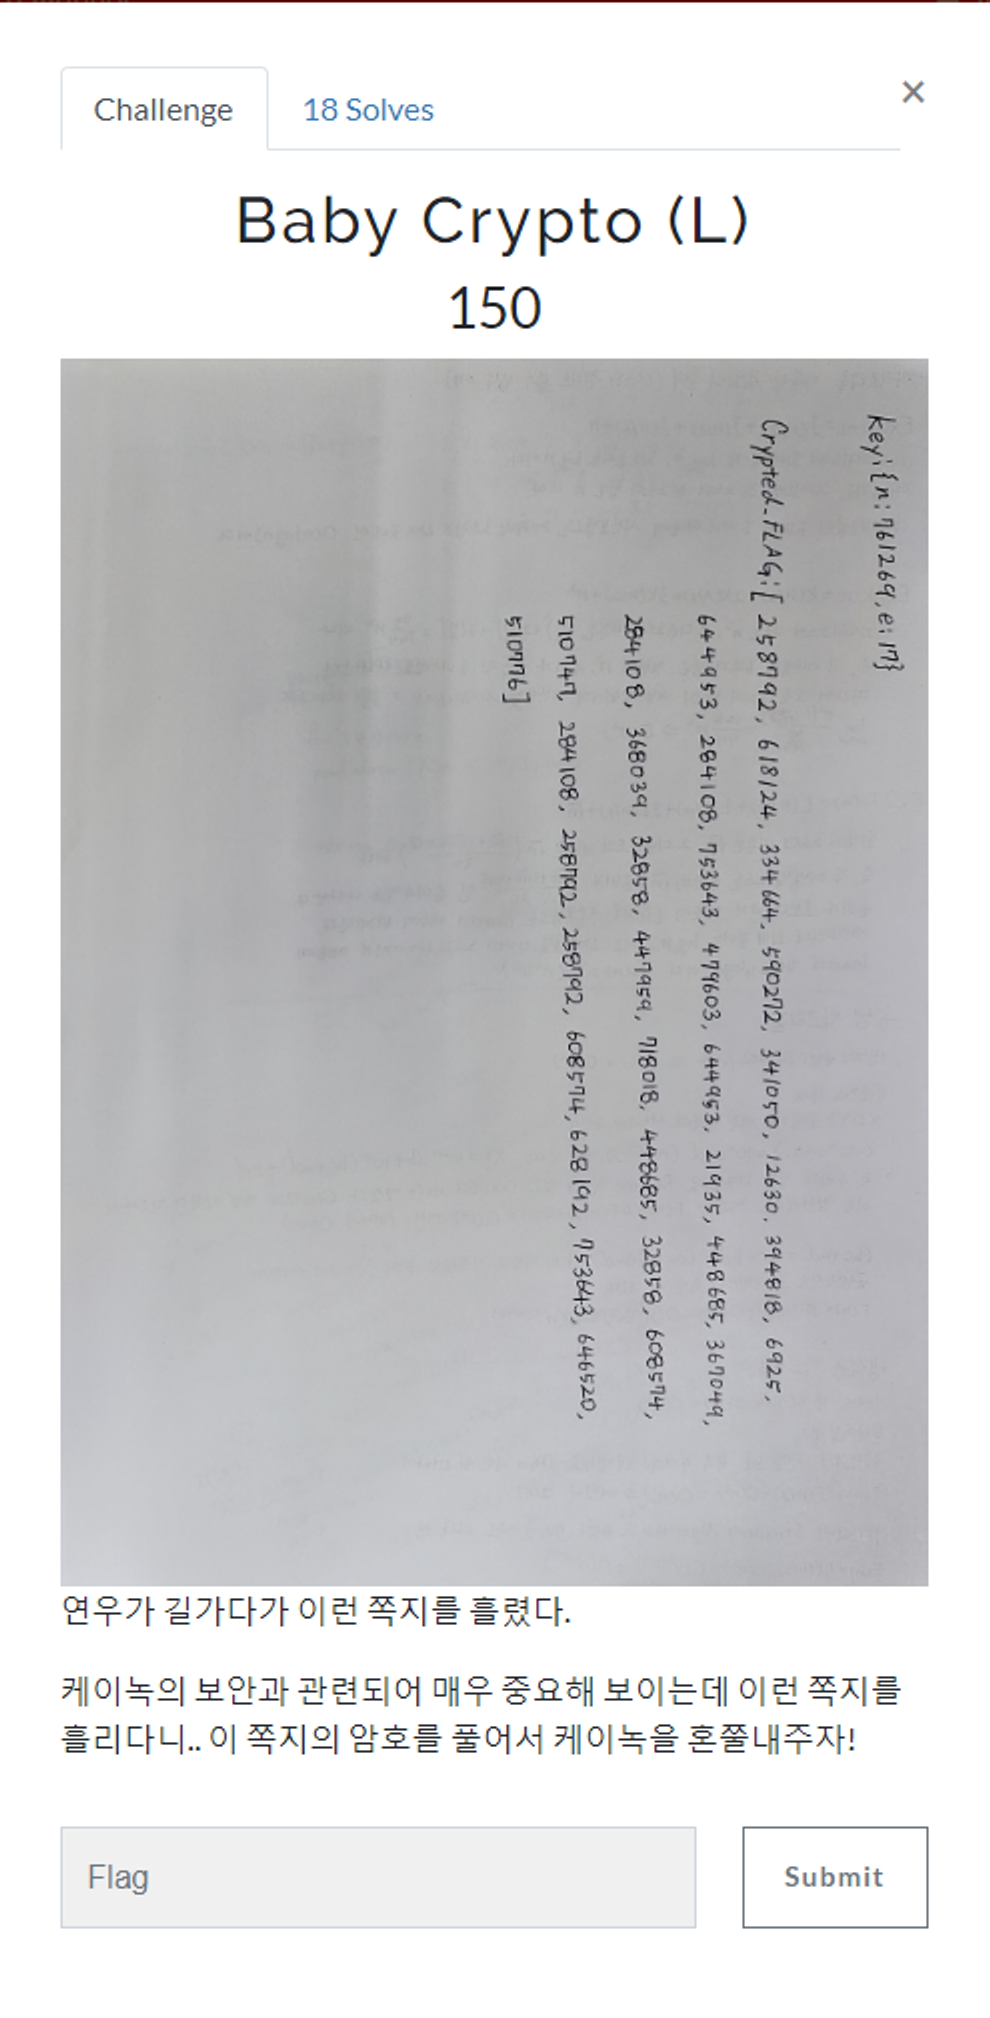 Challenge
18 Solves
×
Baby Crypto (L)
150
key:{n:761269,e:17}
Crypted_FLAG:[258792, 618124, 334664, 590272, 341050, 12630, 394818, 6925,
644953, 284108, 753643, 479603, 644953, 21935, 448685, 367049,
284108, 368039, 32858, 447959, 718018, 448685, 32858, 608574,
510747, 284108, 258792, 258792, 608574, 628192, 753643, 646520,
510776]
연우가 길가다가 이런 쪽지를 흘렸다.
케이녹의 보안과 관련되어 매우 중요해 보이는데 이런 쪽지를
흘리다니.. 이 쪽지의 암호를 풀어서 케이녹을 혼쭐내주자!
Flag
Submit